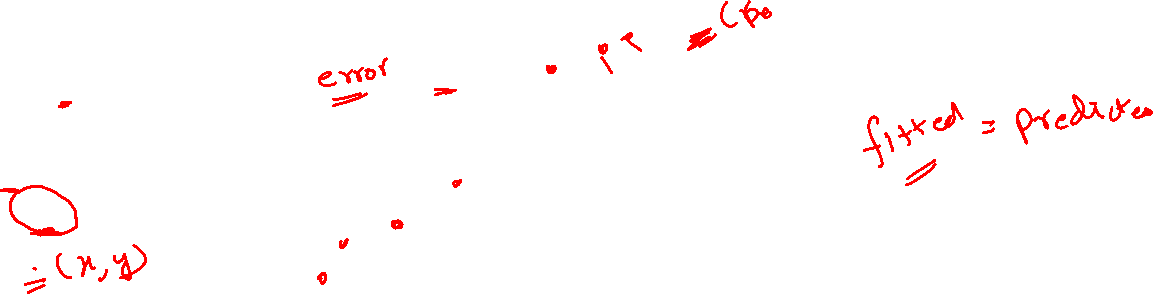 error =
fitted = predicted
= (x, y)